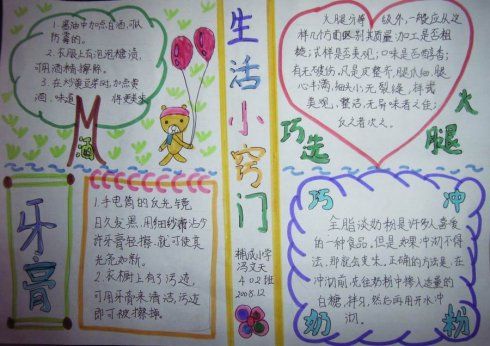 1.酱油中加点白酒,可以
防霉的。
2.衣服上有泡泡糖渍,
可用酒精擦除。
3.在炒黄豆芽时,加点黄
酒,味道
M
酒
生活小窍门
大腿分等级外,一般应从这
样几个方面区别其质量:加工是否粗
糙;式样是否美观;口味是否醇香;
有无破伤,凡是皮整齐,腿爪细,腿
心丰满,细头小,无裂缝,样式
美观,整洁,无异味者之佳;
反之者次之。
巧选
火腿
牙膏
1.手电筒的反光镜
日久发黑,用细纱布沾少
许牙膏轻擦,就可使其
光亮如新。
2.衣橱上有了污迹,
可用牙膏来清洁,污迹
即可被擦掉。
小学
冯文天
402班
2008.12
巧冲
奶粉
全脂淡奶粉是许多人喜爱
的一种食品,但是如果冲沏不得
法,那就会生。正确的方法是:在
冲沏前,先往奶粉中掺入适量的
白糖,拌匀,然后再用开水冲
沏。